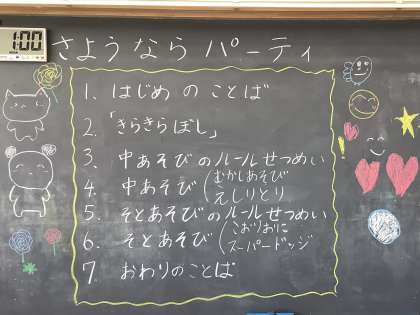 1:00
さようなら パーティ
1. はじめ の ことば
2. 「きらきら ぼし」
3. 中あそびのルールせつめい
4. 中あそび（むかしあそび
えしりとり
5. そとあそびのルールせつめい
6. そとあそび（こおりおに
スーパードッジ
7. おわりのことば